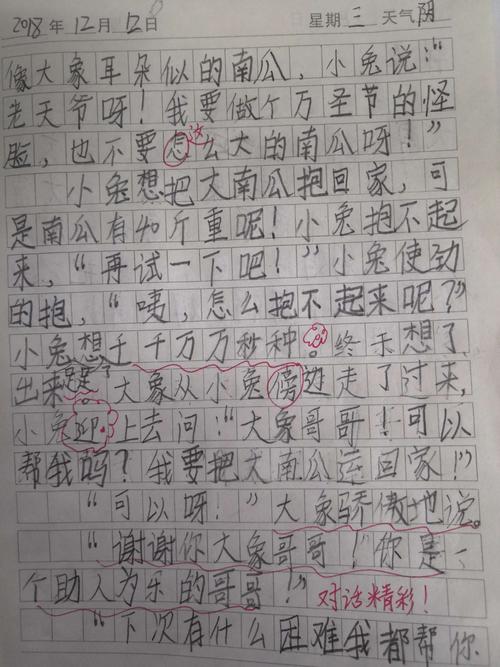 2018年12月12日 星期三 天气阴
像大象耳朵似的南瓜，小兔说：“
老天爷呀！我要做个万圣节的怪
脸，也不要怎这么大的南瓜呀！”
小兔想把大南瓜抱回家，可
是南瓜有40斤重呢！小兔抱不起
来，“再试一下吧！”小兔使劲
的抱，“咦，怎么抱不起来呢？”
小兔想千千万万秒种。终于想了
出来 大象从小兔傍边走了过来，
小兔迎上去问：“大象哥哥！可以
帮我吗？我要把大南瓜运回家！”
“可以呀！”大象骄傲地说。
“谢谢你大象哥哥！你是一
个助人为乐的哥哥！” 对话精彩！
“下次有什么困难我都帮你